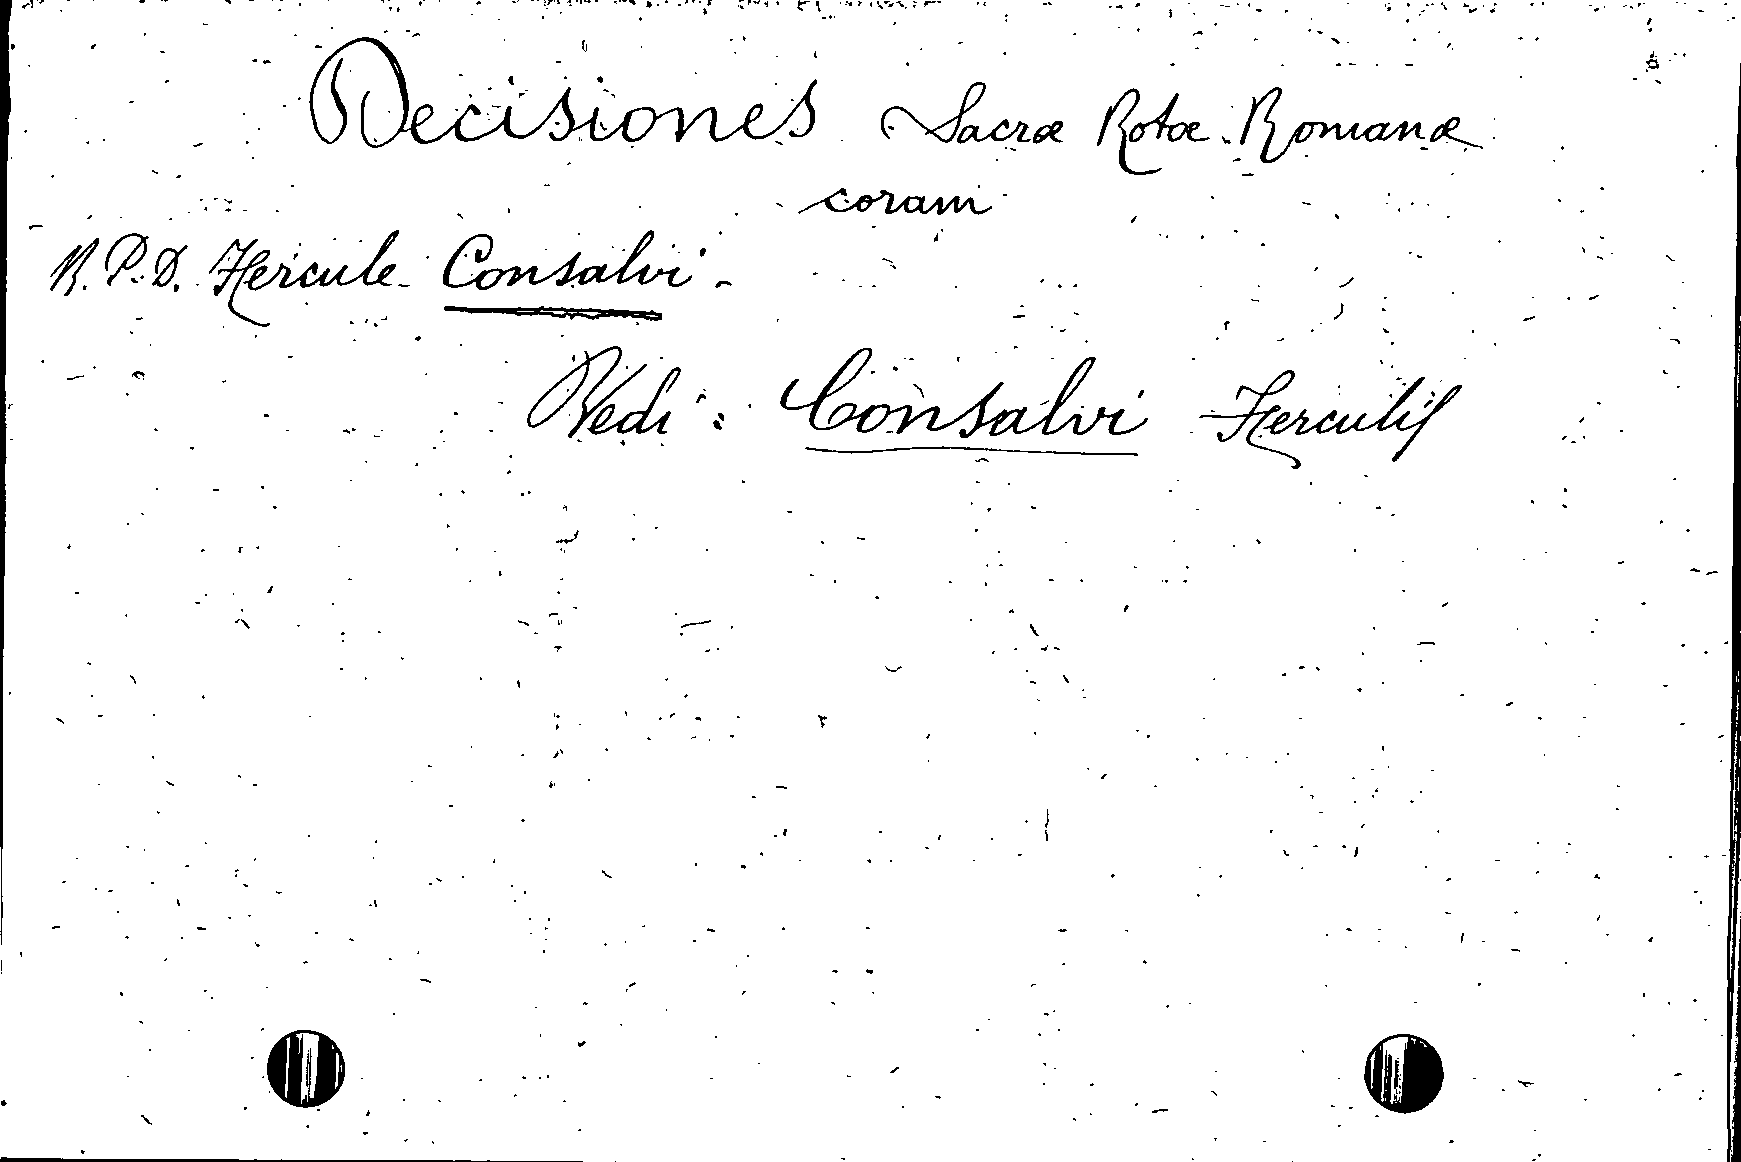 Decisiones Sacræ Rotæ Romanæ
coram
R. P. D. Hercule Consalvi -
Vedi : Consalvi Herculis